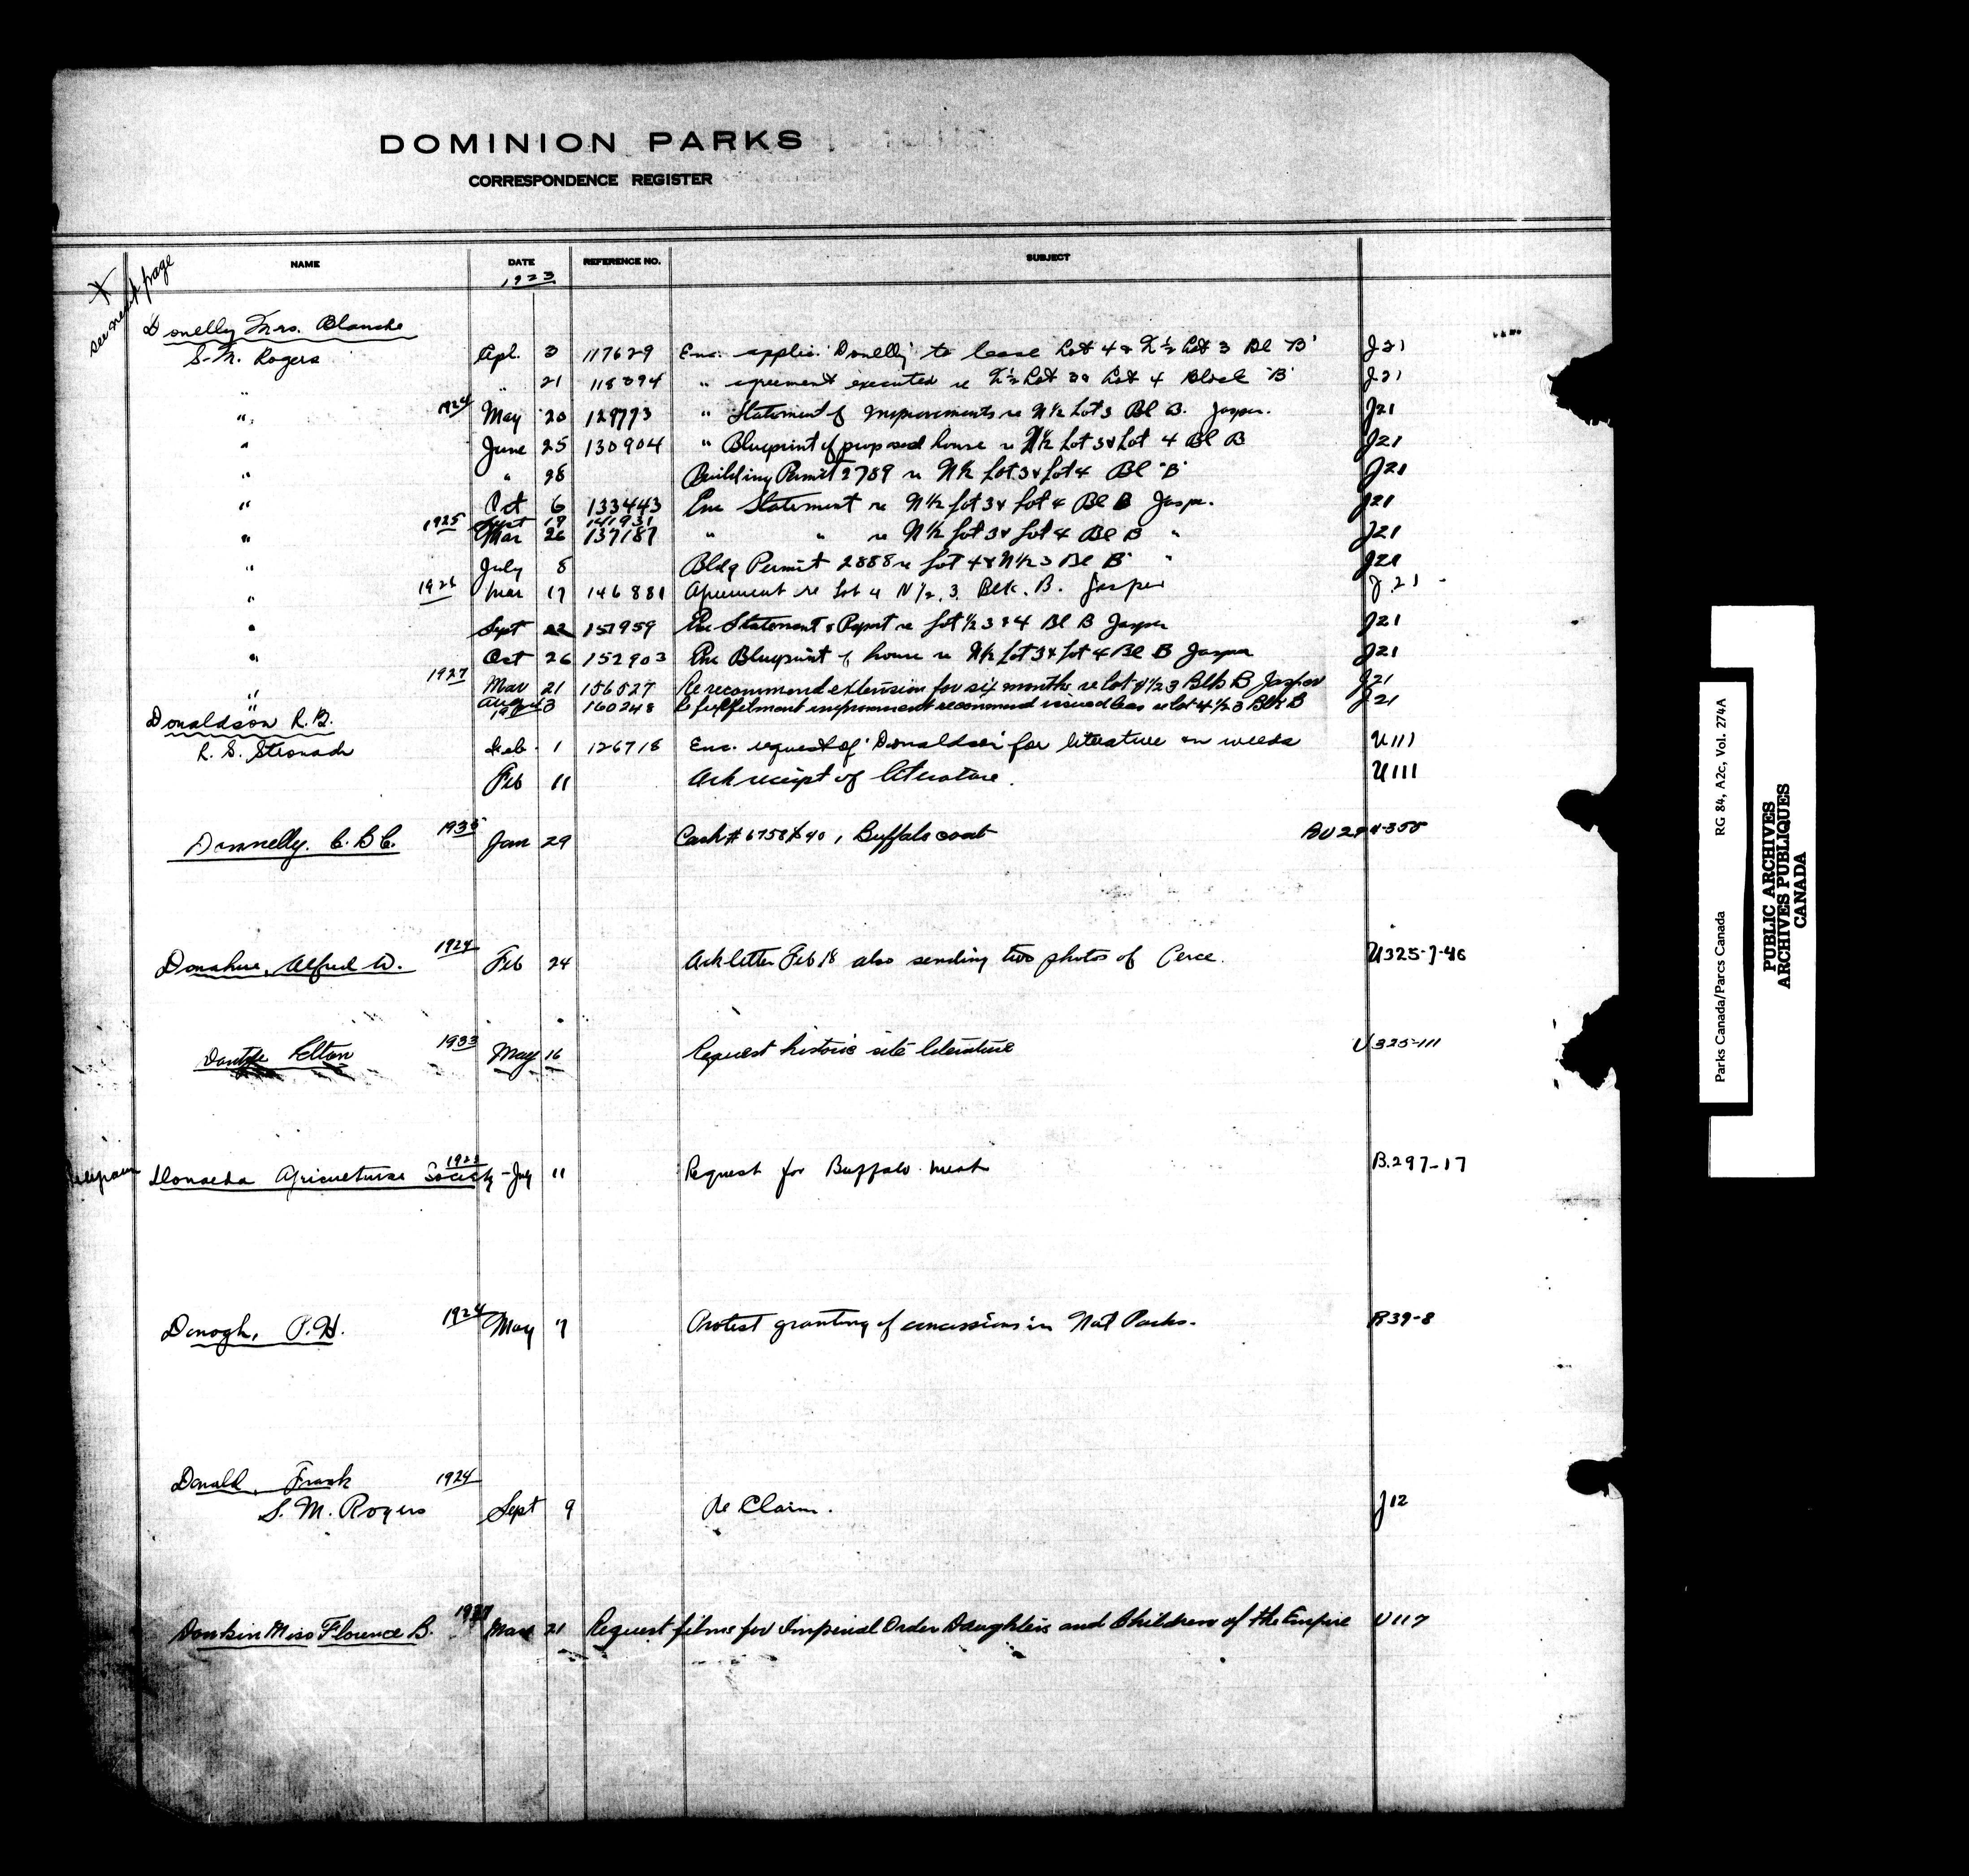 DOMINION PARKS
CORRESPONDENCE REGISTER
NAME DATE REFERENCE NO. SUBJECT
1923
see next page
Donelly Mrs. Blanche
S. M. Rogers Apl. 3 117629 Enc. applic. "Donelly" to lease Lot 4 & N½ Lot 3 Bl "B" J21
" " 21 118394 " agreement executed re N½ Lot 3 & Lot 4 Block "B" J21
" 1924 May 20 129773 " Statement of Improvements re N½ Lot 3 Bl B. Jasper. J21
" June 25 130904 " Blueprint of proposed house re N½ Lot 3 & Lot 4 Bl B J21
" " 28 Building Permit 2789 re N½ Lot 3 & Lot 4 Bl "B" J21
" Oct 6 133443 Enc Statement re N½ Lot 3 & Lot 4 Bl B Jasper. J21
1925 Sept 19 141931
" Mar 26 137187 " " re N½ Lot 3 & Lot 4 Bl B " J21
" July 8 Bldg Permit 2888 re Lot 4 & N½ 3 Bl B " J21
" 1926 Mar 17 146881 Agreement re Lot 4 N½. 3. Blk. B. Jasper J.21
" Sept 157959 Enc Statement & Report re Lot ½ 3 & 4 Bl B Jasper J21
" Oct 26 152903 Enc Blueprint of house re N½ Lot 3 & Lot 4 Bl B Jasper J21
1927 Mar 21 156527 Re recommend extension for six months re lot 4 ½ 3 Blk B Jasper J21
" August 3 160248 Re fulfilment improvement recommend issued leas re lot 4 ½ 3 Blk B J21
Donaldson R. B.
R. S. Stronach Feb. 1 126718 Enc. request of "Donaldson" for literature on weeds U111
Feb 11 Ack receipt of literature. U111
Donnelly. C. B C. 1935 Jan 29 Cash # 6758 $40, Buffalo coat
Donahue, Alfred W. 1924 Feb 24 Ack letter Feb 18 also sending two photos of Perce. U325-7-46
Pelton 1933 May 16 Request historic site literature U325-111
Donalda Agricultural Society 1923 July 11 Request for Buffalo meat B.297-17
Donogh, P. H. 1924 May 7 Protest granting of concessions in Nat Parks. R39-8
Donald, Frank 1924
S. M. Rogers Sept 9 Re Claim. J12
Donkin Miss Florence B. 1937 Mar 21 Request films for Imperial Order Daughters and Children of the Empire U117
Parks Canada/Parcs Canada RG 84, A2c, Vol. 274A
PUBLIC ARCHIVES
ARCHIVES PUBLIQUES
CANADA